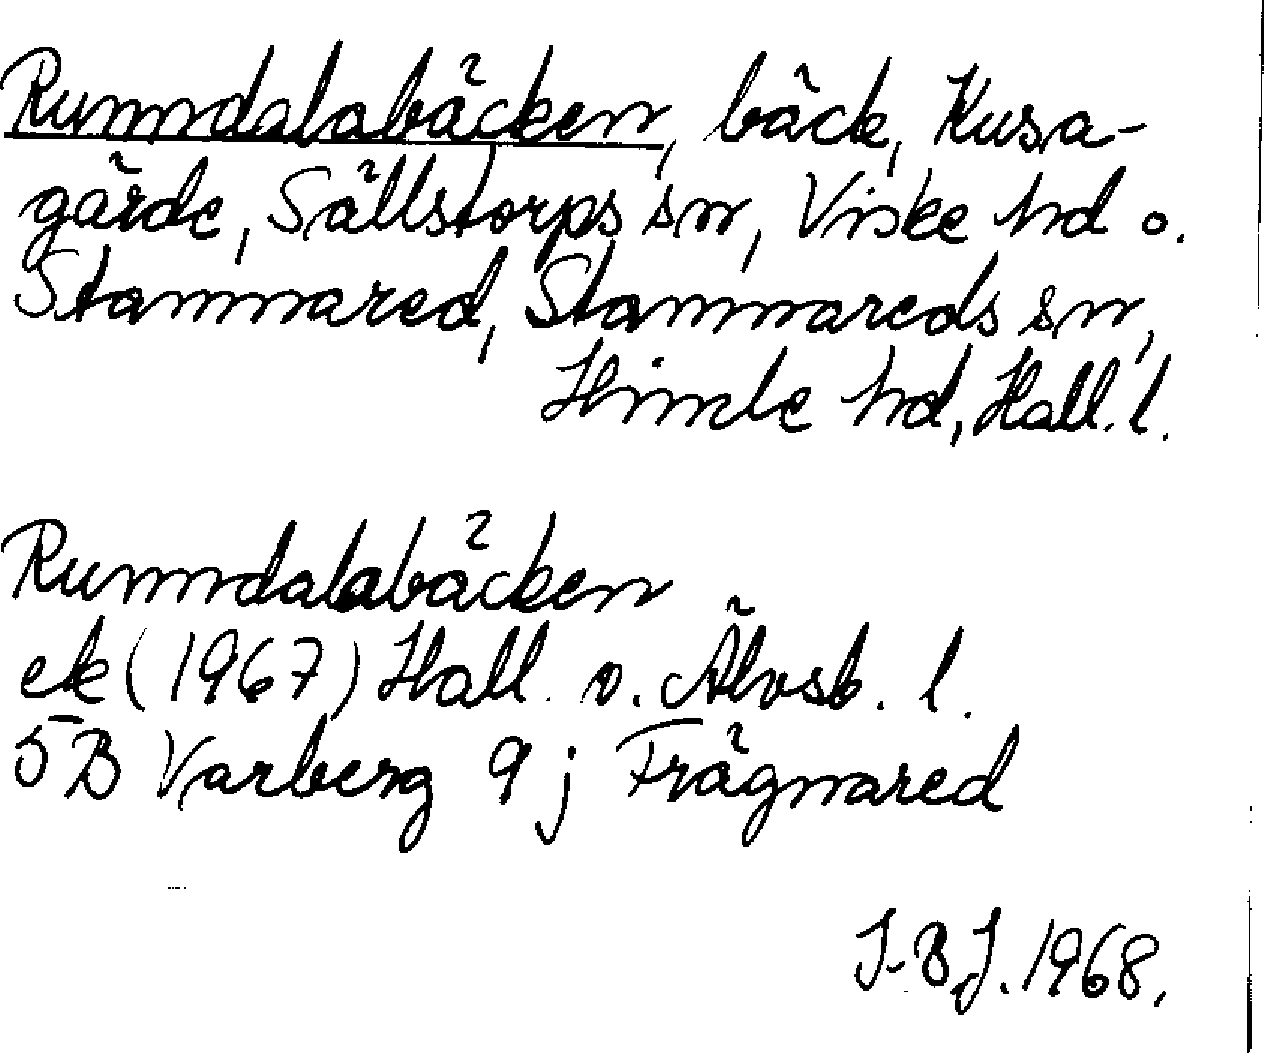 Runndalabäcken, bäck, Kusa-
gärde, Sällstorps sn, Viske hd o.
Stamnared, Stamnareds sn,
Himle hd, Hall. l.
Runndalabäcken
ek (1967) Hall. o. Älvsb. l.
5B Varberg 9j Frägnared
J-BJ. 1968.